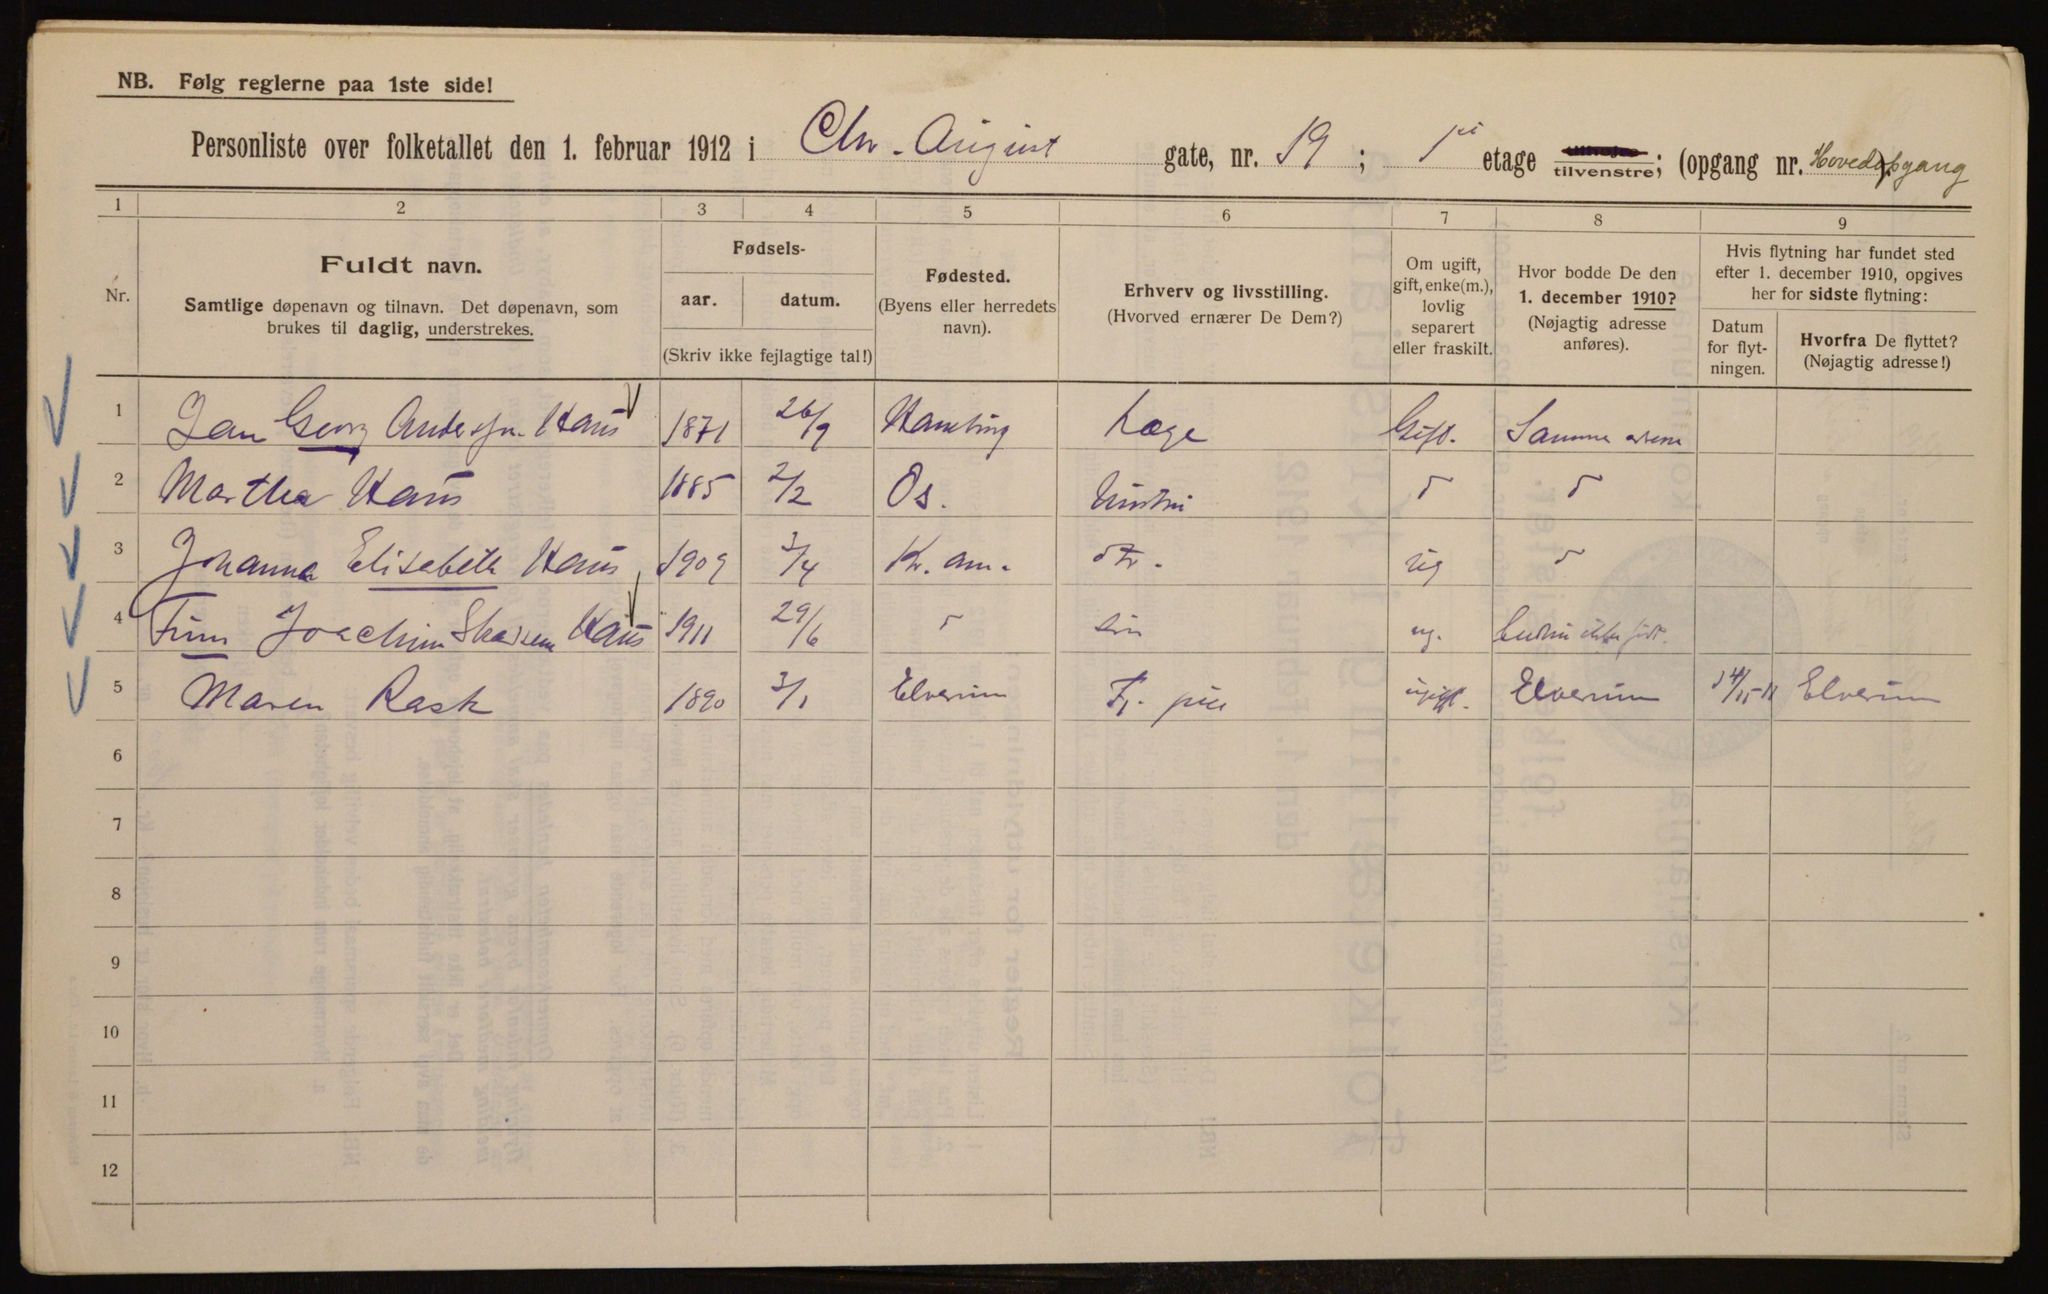 NB. Følg reglerne paa 1ste side!
Personliste over folketallet den 1. februar 1912 i Chr. August gate, nr. 19; 1ste etage tilvenstre; (opgang nr. Hovedopgang
1 2 3 4 5 6 7 8 9
Nr.
Fuldt navn.
Samtlige døpenavn og tilnavn. Det døpenavn, som
brukes til daglig, understrekes.
Fødsels-
aar. datum.
(Skriv ikke fejlagtige tal!)
Fødested.
(Byens eller herredets
navn).
Erhverv og livsstilling.
(Hvorved ernærer De Dem?)
Om ugift,
gift, enke(m.),
lovlig
separert
eller fraskilt.
Hvor bodde De den
1. december 1910?
(Nøjagtig adresse
anføres).
Hvis flytning har fundet sted
efter 1. december 1910, opgives
her for sidste flytning:
Datum
for flyt-
ningen.
Hvorfra De flyttet?
(Nøjagtig adresse!)
1 Jan Georg Haus 1871 26/9 Læge Gift. Samme
2 Martha Haus 1885 2/2 Os. Hustru
3 Johanna Elisabeth Haus 1909 3/4 Kr.ania dtr. ug
4 Finn Joachim Haus 1911 29/6 søn ug. Endnu ikke født.
5 Maren Rask 1890 3/1 Elverum Tj. pike ugift. Elverum Elverum
6
7
8
9
10
11
12